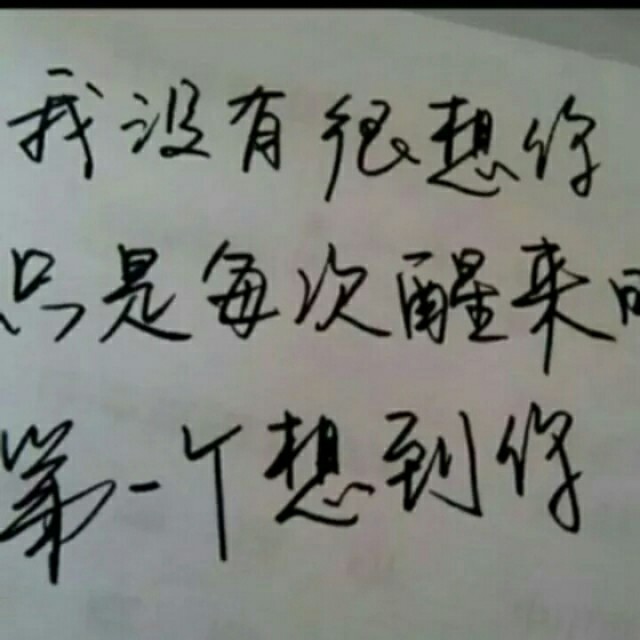 我没有很想你
只是每次醒来
第一个想到你